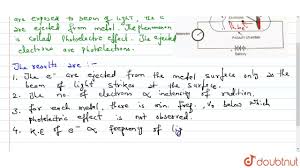 are exposed to beam of light, the e⁻
are ejected from metal. The phenomenon
is called Photoelectric effect. The ejected
electrons are photoelectrons.
The results are :-
1. The e⁻ are ejected from the metal surface only as the
beam of light strikes at the surface.
2. The no. of electrons ∝ intensity of radiation.
3. for each metal, there is min. freq., ν₀ below which
photoelectric effect is not observed.
4. K.E of e⁻ ∝ frequency of lig
Vacuum chamber
Battery
doubtnut